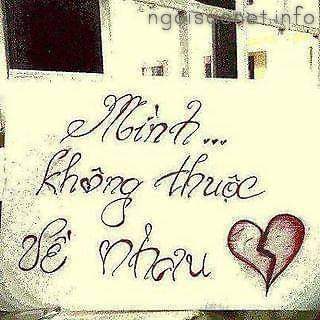 ngoisaoblet.info
Mình...
không thuộc
về nhau